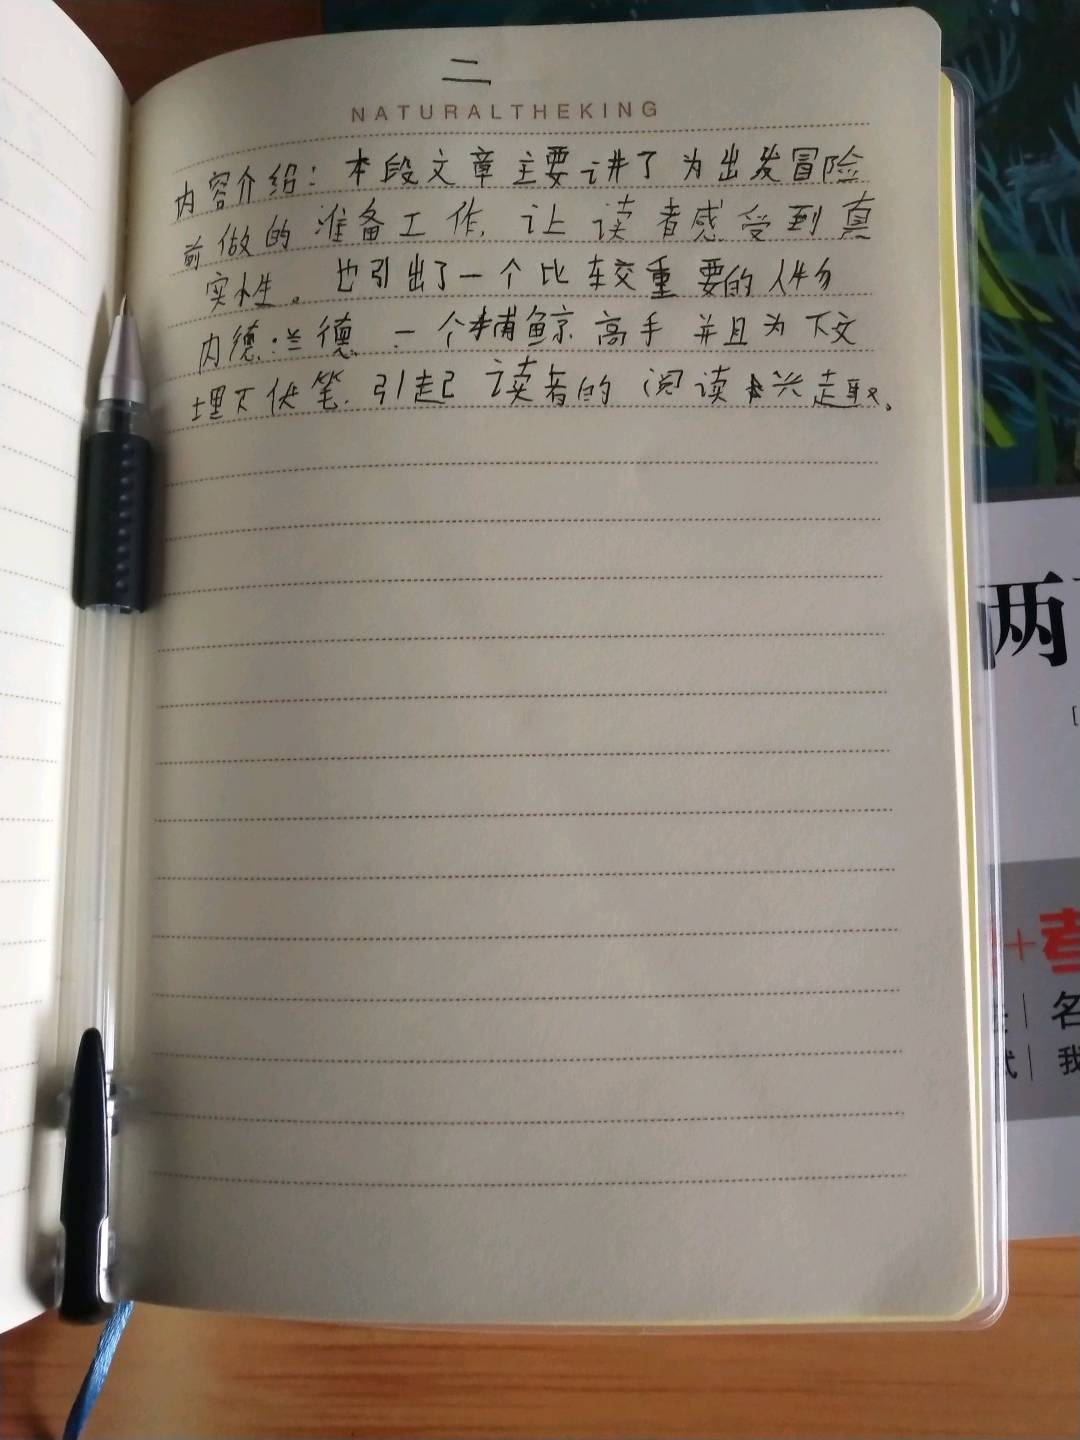 二
NATURALTHEKING
内容介绍：本段文章主要讲了为出发冒险
前做的准备工作，让读者感受到真
实性。也引出了一个比较重要的人物
内德·兰德 一个捕鲸高手 并且为下文
埋下伏笔，引起读者的阅读兴趣。
两
[
+考
名
式 我